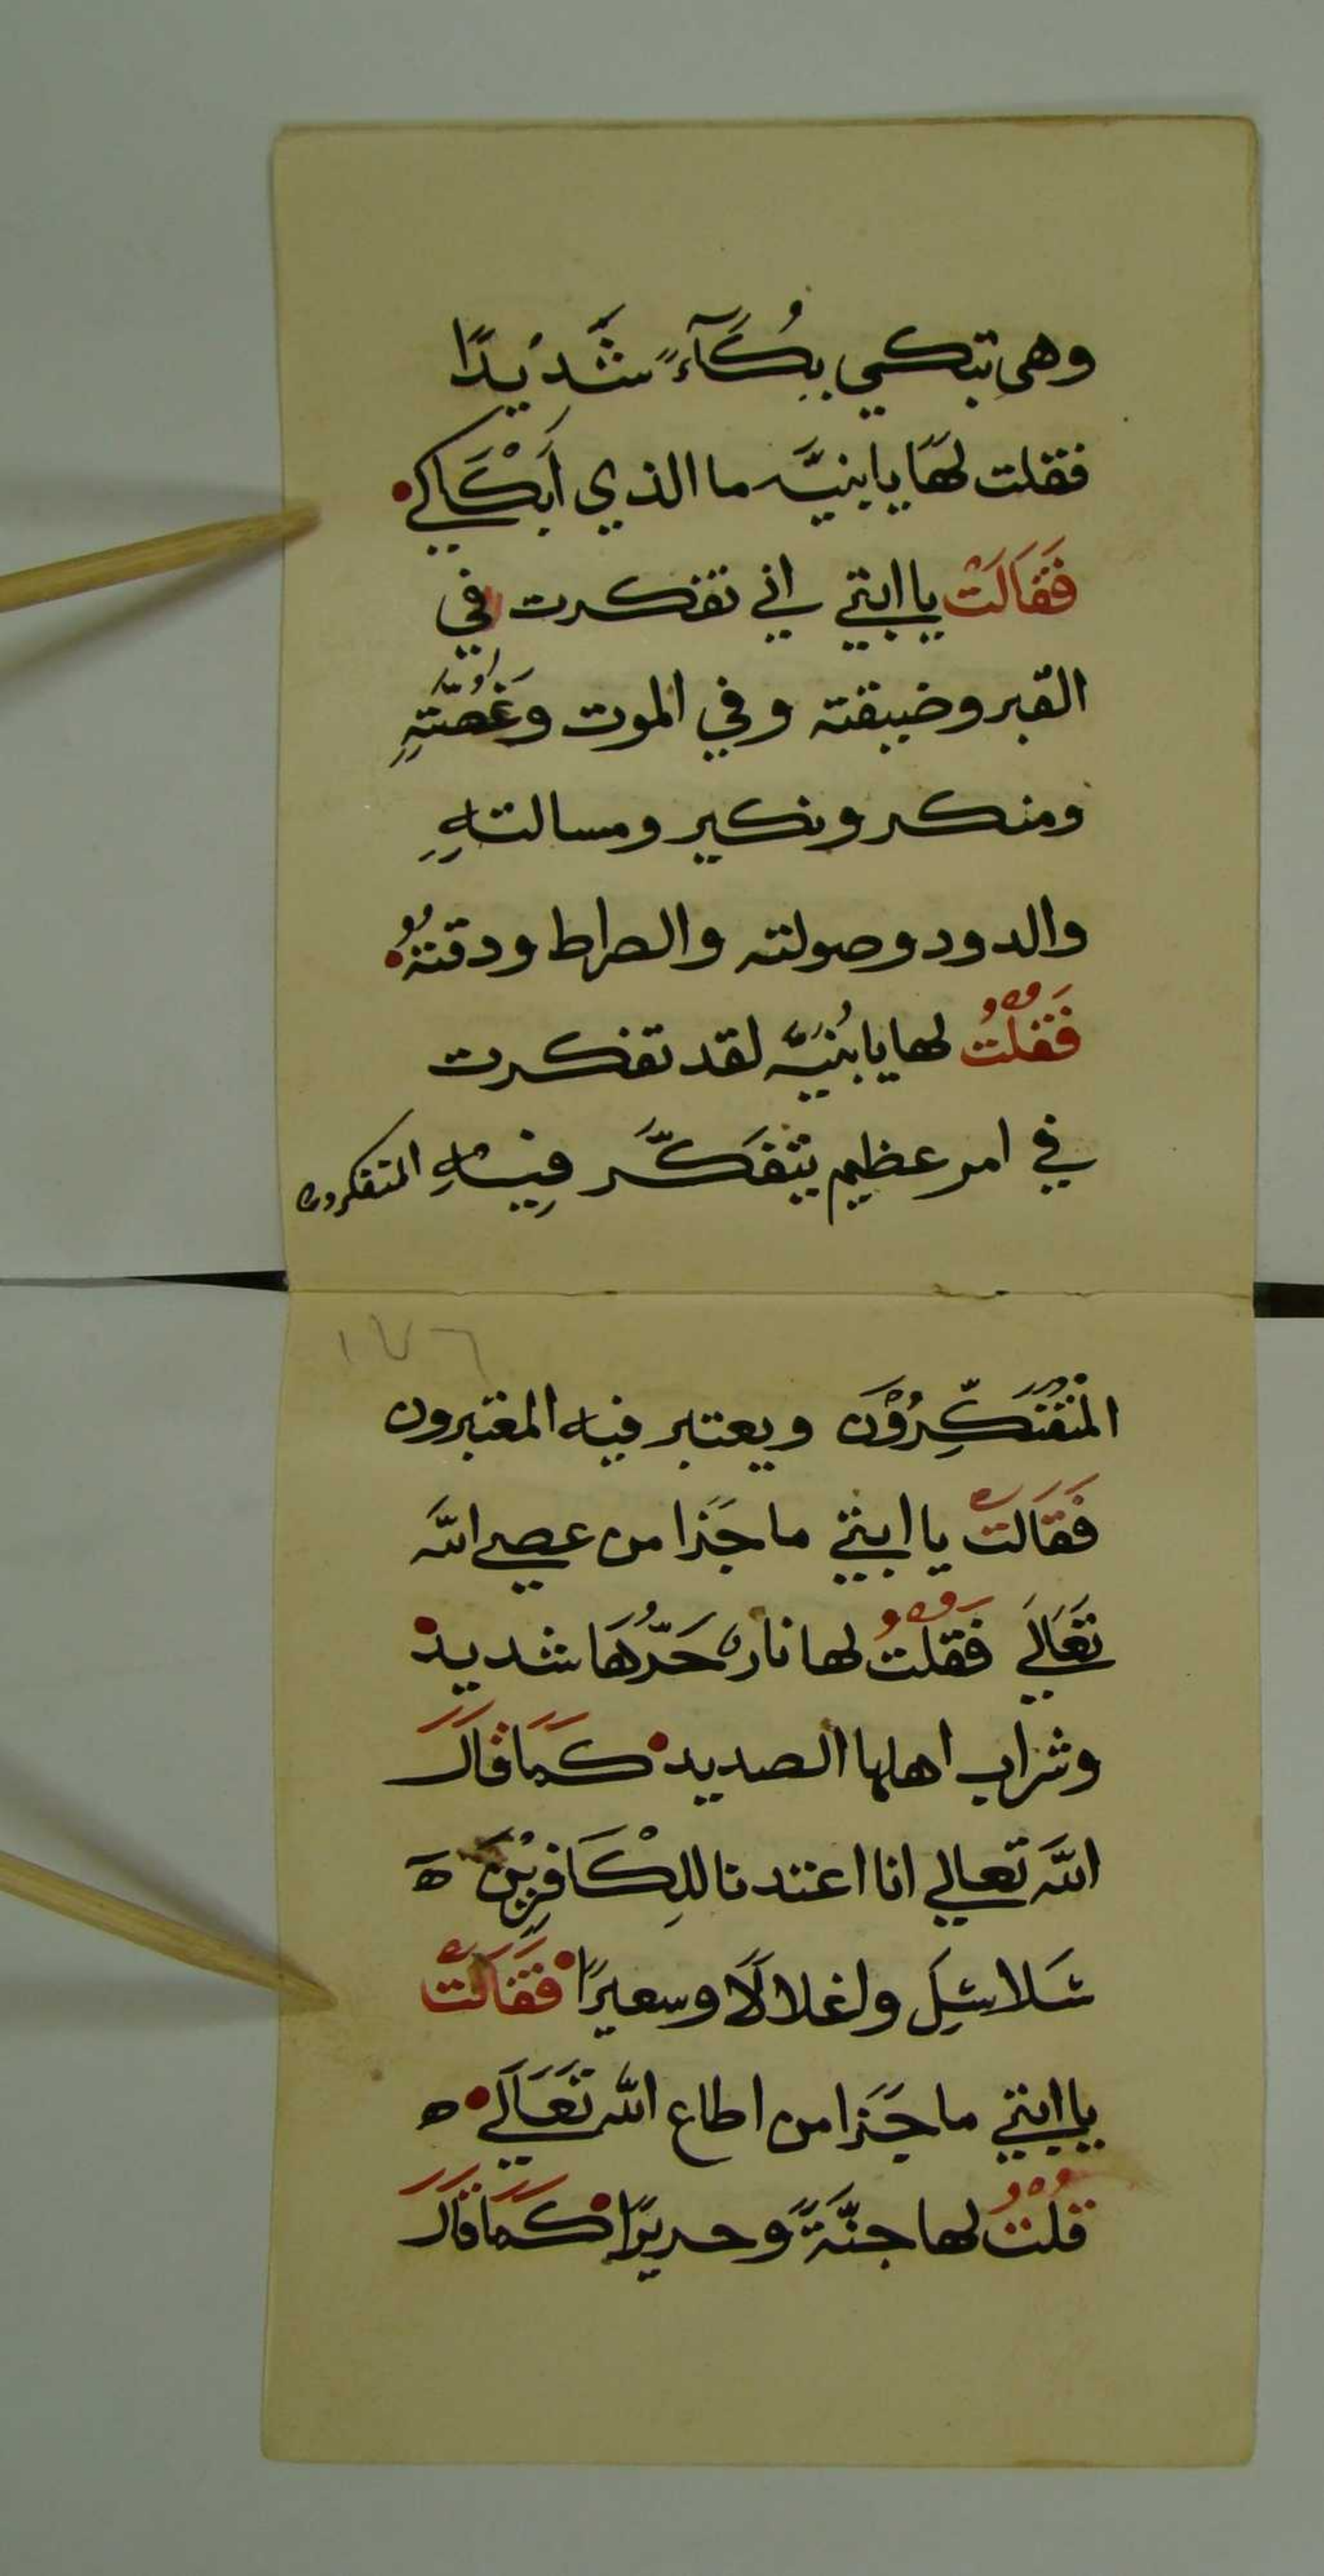 وهي تبكي بِبُكَآءً شَّديدًا
فقلت لهَا يا بنيَّه ما الذي اَبْكَاكي
فَقَالَتْ يا ابتي اني تفكرت في
القبر وضيقته وفي الموت وَغُصَّتِهِ
ومنكر ونكير ومسالتهِ
والدود وصولته والصراط ودقتهُ
فَقُلْتُ لها يا بُنيَّه لقد تفكرت
في امر عظيم يتفَكَّر فِيهِ المتفكرون
١٧٦
المُتَفَكِّرُوْنَ ويعتبر فيه المعتبرون
فَقَالَتْ يا ابتي ما جَزا من عصي اللَّه
تَعَالَي فَقُلْتُ لها نار حَرُّهَا شديد
وشراب اهلها الصديد كَمَا قَالَ
اللَّه تعالي انا اعتدنا لِلْكَافِرِيْنَ ه
سَلاسِلَ واغلالًا وسعيرًا فَقَالَتْ
يا ابتي ما جَزا من اطاع اللَّه تَعَالَي ه
قُلْتُ لها جنَّةً وحريرًا كَمَا قَالَ